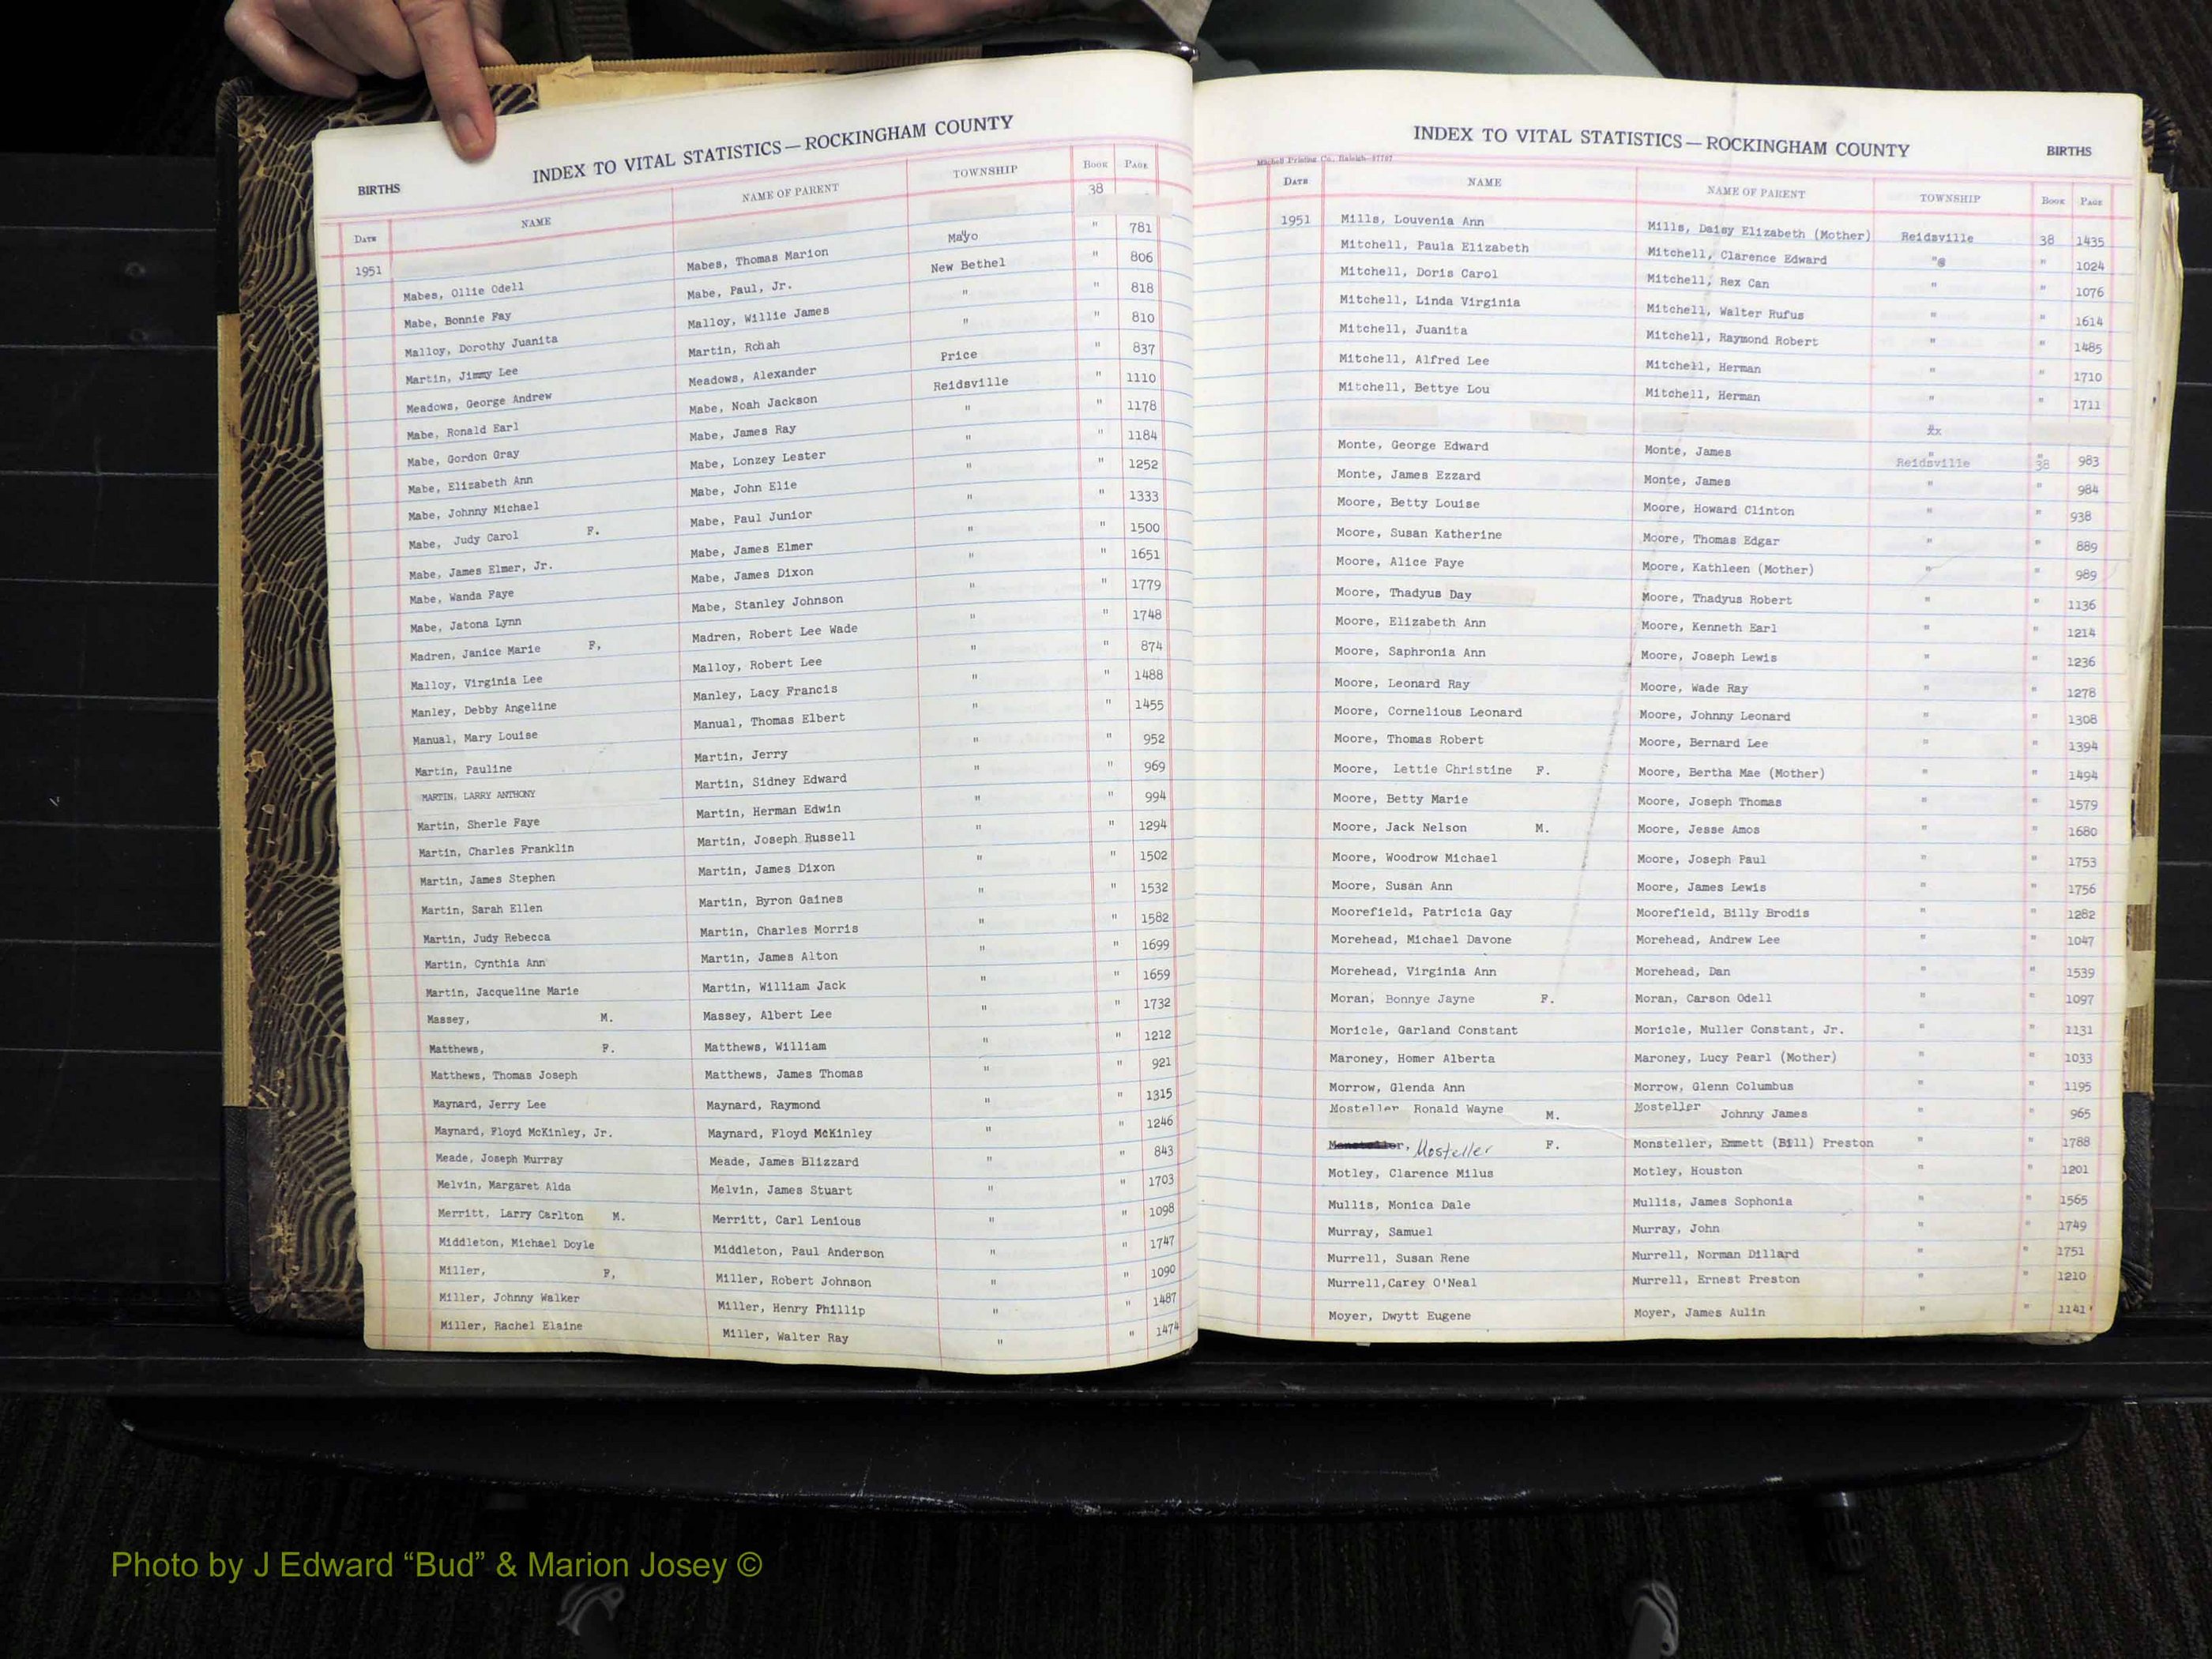 INDEX TO VITAL STATISTICS—ROCKINGHAM COUNTY
BIRTHS
DATE NAME NAME OF PARENT TOWNSHIP BOOK PAGE
38
1951
Mabes, Ollie Odell Mabes, Thomas Marion Mayo " 781
Mabe, Bonnie Fay Mabe, Paul, Jr. New Bethel " 806
Malloy, Dorothy Juanita Malloy, Willie James " " 818
Martin, Jimmy Lee Martin, Rohah " " 810
Meadows, George Andrew Meadows, Alexander Price " 837
Mabe, Ronald Earl Mabe, Noah Jackson Reidsville " 1110
Mabe, Gordon Gray Mabe, James Ray " " 1178
Mabe, Elizabeth Ann Mabe, Lonzey Lester " " 1184
Mabe, Johnny Michael Mabe, John Elie " " 1252
Mabe, Judy Carol F. Mabe, Paul Junior " " 1333
Mabe, James Elmer, Jr. Mabe, James Elmer " " 1500
Mabe, Wanda Faye Mabe, James Dixon " " 1651
Mabe, Jatona Lynn Mabe, Stanley Johnson " " 1779
Madren, Janice Marie F, Madren, Robert Lee Wade " " 1748
Malloy, Virginia Lee Malloy, Robert Lee " " 874
Manley, Debby Angeline Manley, Lacy Francis " " 1488
Manual, Mary Louise Manual, Thomas Elbert " " 1455
Martin, Pauline Martin, Jerry " " 952
MARTIN, LARRY ANTHONY Martin, Sidney Edward " " 969
Martin, Sherle Faye Martin, Herman Edwin " " 994
Martin, Charles Franklin Martin, Joseph Russell " " 1294
Martin, James Stephen Martin, James Dixon " " 1502
Martin, Sarah Ellen Martin, Byron Gaines " " 1532
Martin, Judy Rebecca Martin, Charles Morris " " 1582
Martin, Cynthia Ann Martin, James Alton " " 1699
Martin, Jacqueline Marie Martin, William Jack " " 1659
Massey, M. Massey, Albert Lee " " 1732
Matthews, F. Matthews, William " " 1212
Matthews, Thomas Joseph Matthews, James Thomas " " 921
Maynard, Jerry Lee Maynard, Raymond " " 1315
Maynard, Floyd McKinley, Jr. Maynard, Floyd McKinley " " 1246
Meade, Joseph Murray Meade, James Blizzard " " 843
Melvin, Margaret Alda Melvin, James Stuart " " 1703
Merritt, Larry Carlton M. Merritt, Carl Lenious " " 1098
Middleton, Michael Doyle Middleton, Paul Anderson " " 1747
Miller, F, Miller, Robert Johnson " " 1090
Miller, Johnny Walker Miller, Henry Phillip " " 1487
Miller, Rachel Elaine Miller, Walter Ray " " 1474
INDEX TO VITAL STATISTICS—ROCKINGHAM COUNTY
BIRTHS
Mitchell Printing Co., Raleigh—
DATE NAME NAME OF PARENT TOWNSHIP BOOK PAGE
1951 Mills, Louvenia Ann Mills, Daisy Elizabeth (Mother) Reidsville 38 1435
Mitchell, Paula Elizabeth Mitchell, Clarence Edward " " 1024
Mitchell, Doris Carol Mitchell, Rex Can " " 1076
Mitchell, Linda Virginia Mitchell, Walter Rufus " " 1614
Mitchell, Juanita Mitchell, Raymond Robert " " 1485
Mitchell, Alfred Lee Mitchell, Herman " " 1710
Mitchell, Bettye Lou Mitchell, Herman " " 1711
Monte, George Edward Monte, James Reidsville 38 983
Monte, James Ezzard Monte, James " " 984
Moore, Betty Louise Moore, Howard Clinton " " 938
Moore, Susan Katherine Moore, Thomas Edgar " " 889
Moore, Alice Faye Moore, Kathleen (Mother) " " 989
Moore, Thadyus Day Moore, Thadyus Robert " " 1136
Moore, Elizabeth Ann Moore, Kenneth Earl " " 1214
Moore, Saphronia Ann Moore, Joseph Lewis " " 1236
Moore, Leonard Ray Moore, Wade Ray " " 1278
Moore, Cornelious Leonard Moore, Johnny Leonard " " 1308
Moore, Thomas Robert Moore, Bernard Lee " " 1394
Moore, Lettie Christine F. Moore, Bertha Mae (Mother) " " 1494
Moore, Betty Marie Moore, Joseph Thomas " " 1579
Moore, Jack Nelson M. Moore, Jesse Amos " " 1680
Moore, Woodrow Michael Moore, Joseph Paul " " 1753
Moore, Susan Ann Moore, James Lewis " " 1756
Moorefield, Patricia Gay Moorefield, Billy Brodis " " 1282
Morehead, Michael Davone Morehead, Andrew Lee " " 1047
Morehead, Virginia Ann Morehead, Dan " " 1539
Moran, Bonnye Jayne F. Moran, Carson Odell " " 1097
Moricle, Garland Constant Moricle, Muller Constant, Jr. " " 1131
Maroney, Homer Alberta Maroney, Lucy Pearl (Mother) " " 1033
Morrow, Glenda Ann Morrow, Glenn Columbus " " 1195
Mosteller Ronald Wayne M. Mosteller Johnny James " " 965
Mosteller F. Monsteller, Emmett (Bill) Preston " " 1788
Motley, Clarence Milus Motley, Houston " " 1201
Mullis, Monica Dale Mullis, James Sophonia " " 1565
Murray, Samuel Murray, John " " 1749
Murrell, Susan Rene Murrell, Norman Dillard " " 1751
Murrell,Carey O'Neal Murrell, Ernest Preston " " 1210
Moyer, Dwytt Eugene Moyer, James Aulin " " 1141
Photo by J Edward “Bud” & Marion Josey ©